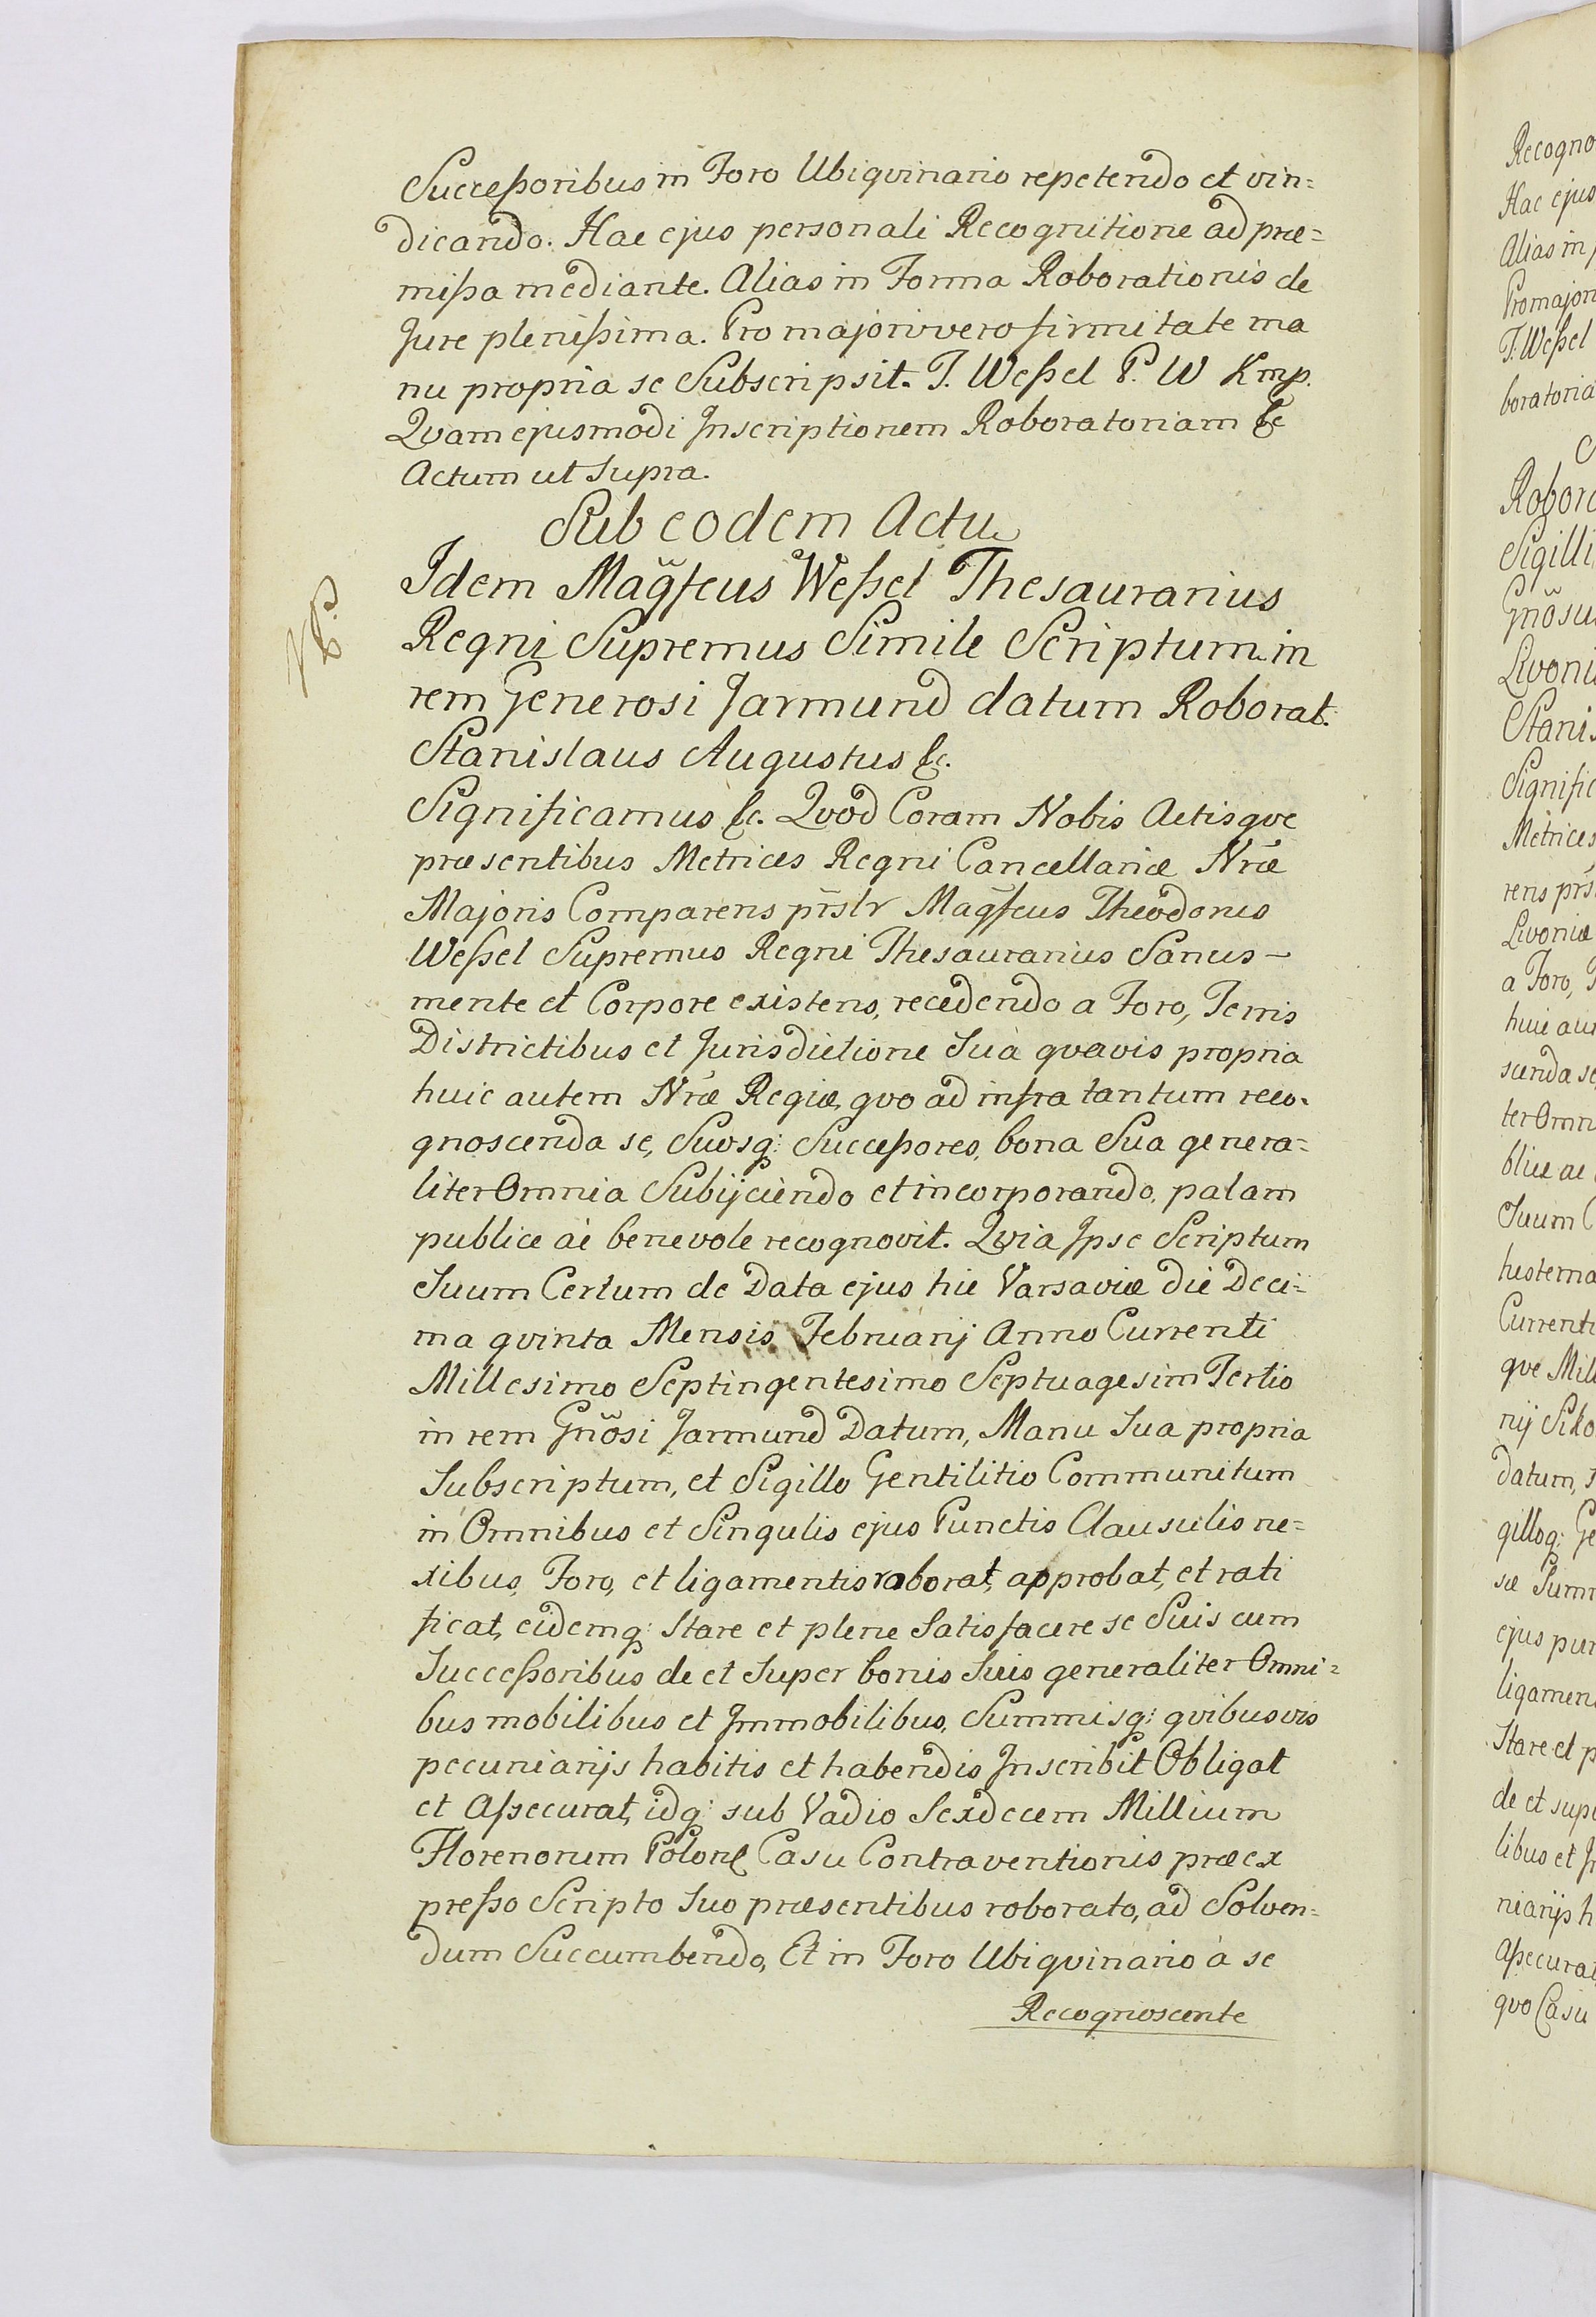 Succeßoribus in Foro Ubiqvinario repetendo et vin=
dicando. Hac ejus personali Recognitione ad præ=
mißa mediante. Alias in Forma Roborationis de
Jure plenißima. Pro majori vero firmitate ma
nu propria se Subscripsit. T. Weßel P. W Kmp.
Qvam ejusmodi Inscriptionem Roboratoriam &c
Actum ut Supra.
Sub eodem Actu
Idem Magfcus Weßel Thesaurarius
Regni Supremus Simile Scriptum in
rem Generosi Jarmund datum Roborat.
Stanislaus Augustus &c.
Significamus &c. Qvod Coram Nobis Actisqve
præsentibus Metrices Regni Cancellariæ Nræ
Majoris Comparens prslr Magfcus Theodorus
Weßel Supremus Regni Thesaurarius Sanus -
mente et Corpore existens, recedendo a Foro, Terris
Districtibus et Jurisdictione Sua qvavis propria
huic autem Nræ Regiæ, qvo ad infra tantum reco-
gnoscenda se, Suosq: Succeßores, bona Sua genera=
liter Omnia Subijciendo et incorporando, palam
publice ac benevole recognovit. Qvia Ipse Scriptum
Suum Certum de Data ejus hic Varsaviæ die Deci=
ma qvinta Mensis Februarij Anno Currenti
Millesimo Septingentesimo Septuagesim Tertio
in rem Gnosi Jarmund Datum, Manu Sua propria
Subscriptum, et Sigillo Gentilitio Communitum
in Omnibus et Singulis ejus Punctis Clausulis ne=
xibus, Foro, et ligamentis roborat, approbat, et rati
ficat, eidemq: Stare et plene Satisfacere se Suis cum
Succeßoribus de et Super bonis Suis generaliter Omni=
bus mobilibus et Immobilibus, Summisq: qvibusvis
pecuniarijs habitis et habendis Inscribit Obligat
et Aßecurat, idq: sub Vadio Sexdecem Millium
Florenorum Polon Casu Contraventionis præex
preßo Scripto Suo præsentibus roborato, ad Solven=
dum Succumbendo, Et in Foro Ubiqvinario à se
Recognoscente
Recogno
Hac ejus
Alias in
Pro majori
T. Weßel
boratoria
Robora
Sigilli
Gnosu
Livoni
Stanis
Signific
Metrices
rens prs
Livoniæ
a Foro,
huic au
scenda se
ter Omn
blice ac
Suum C
Currenti
qve Mill
datum,
gilloq: Ge
sæ Summ
ejus pun
ligamen
Stare et p
de et supe
libus et
niarijs h
Aßecurat
qvo Casu